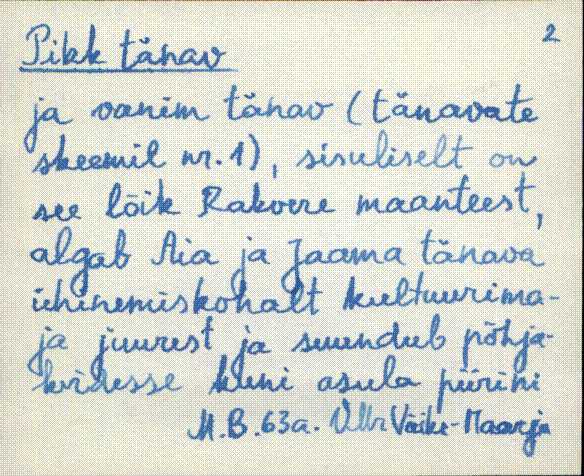 2
Pikk tänav
ja vanim tänav (tänavate
skeemil nr. 1), sisuliselt on
see lõik Rakvere maanteest,
algab Aia ja Jaama tänava
ühinemiskohalt kultuurima-
ja juurest ja suundub põhja-
kirdesse kuni asula piirini
M.B. 63a. Väike-Maarja